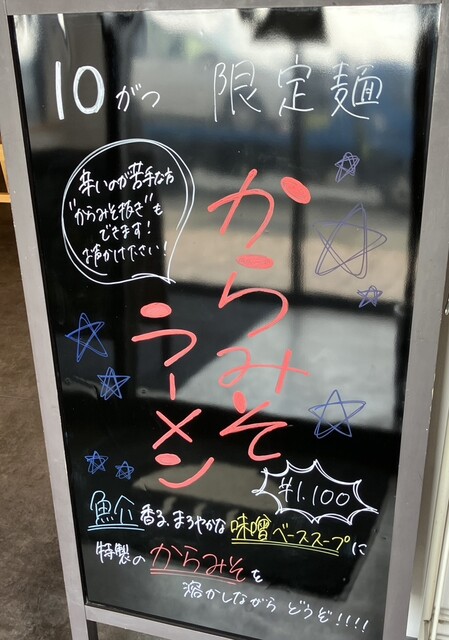 10がつ 限定麺
辛いのが苦手な方
"からみそ抜き"も
できます!
お声かけ下さい!
からみそ
ラーメン
¥1,100
魚介香る、まろやかな味噌ベーススープに
特製のからみそを
溶かしながら どうぞ!!!!